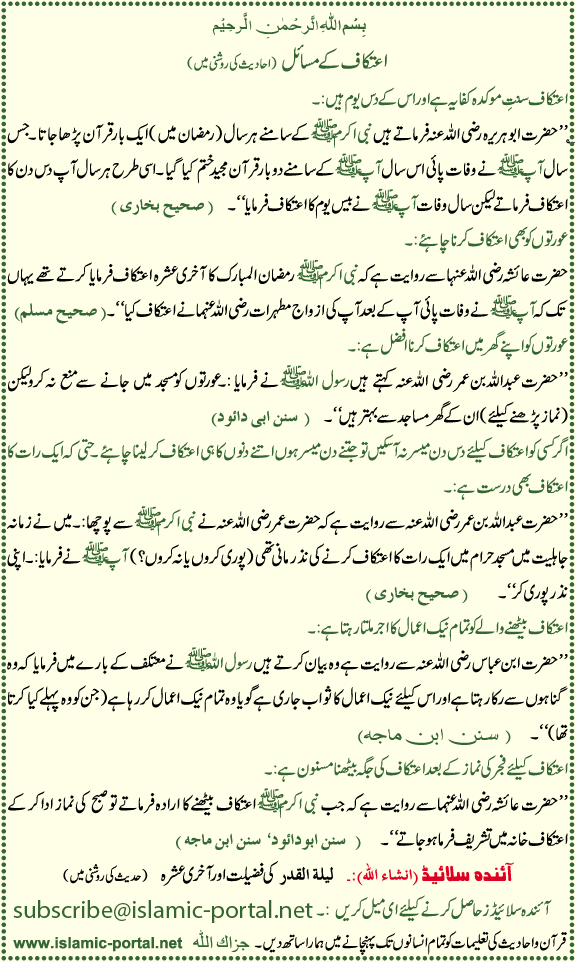 بِسْمِ اللهِ الرَّحْمٰنِ الرَّحِيْمِ
اعتکاف کے مسائل (احادیث کی روشنی میں)
اعتکاف سنتِ موکدہ کفایہ ہے اور اس کے دس یوم ہیں:۔
’’حضرت ابو ہریرہ رضی اللہ عنہ فرماتے ہیں نبی اکرم ﷺ کے سامنے ہر سال (رمضان میں) ایک بار قرآن پڑھا جاتا۔ جس
سال آپ ﷺ نے وفات پائی اس سال آپ ﷺ کے سامنے دو بار قرآن مجید ختم کیا گیا۔ اسی طرح ہر سال آپ دس دن کا
اعتکاف فرماتے لیکن سال وفات آپ ﷺ نے بیس یوم کا اعتکاف فرمایا‘‘۔ (صحیح بخاری)
عورتوں کو بھی اعتکاف کرنا چاہئے:۔
حضرت عائشہ رضی اللہ عنہا سے روایت ہے کہ نبی اکرم ﷺ رمضان المبارک کا آخری عشرہ اعتکاف فرمایا کرتے تھے یہاں
تک کہ آپ ﷺ نے وفات پائی آپ کے بعد آپ کی ازواج مطہرات رضی اللہ عنہما نے اعتکاف کیا‘‘۔ (صحیح مسلم)
عورتوں کو اپنے گھر میں اعتکاف کرنا افضل ہے:۔
’’حضرت عبداللہ بن عمر رضی اللہ عنہ کہتے ہیں رسول اللہ ﷺ نے فرمایا:۔ عورتوں کو مسجد میں جانے سے منع نہ کرو لیکن
(نماز پڑھنے کیلئے) ان کے گھر مساجد سے بہتر ہیں‘‘۔ (سنن ابی دائود)
اگر کسی کو اعتکاف کیلئے دس دن میسر نہ آسکیں تو جتنے دن میسر ہوں اتنے دنوں کا ہی اعتکاف کر لینا چاہئے۔ حتی کہ ایک رات کا
اعتکاف بھی درست ہے:۔
’’حضرت عبداللہ بن عمر رضی اللہ عنہ سے روایت ہے کہ حضرت عمر رضی اللہ عنہ نے نبی اکرم ﷺ سے پوچھا:۔ میں نے زمانہ
جاہلیت میں مسجد حرام میں ایک رات کا اعتکاف کرنے کی نذر مانی تھی (پوری کروں یا نہ کروں؟) آپ ﷺ نے فرمایا:۔ اپنی
نذر پوری کر‘‘۔ (صحیح بخاری)
اعتکاف بیٹھنے والے کو تمام نیک اعمال کا اجر ملتا رہتا ہے:۔
’’حضرت ابن عباس رضی اللہ عنہ سے روایت ہے وہ بیان کرتے ہیں رسول اللہ ﷺ نے معتکف کے بارے میں فرمایا کہ وہ
گناہوں سے رکا رہتا ہے اور اس کیلئے نیک اعمال کا ثواب جاری ہے گویا وہ تمام نیک اعمال کر رہا ہے (جن کو وہ پہلے کیا کرتا
تھا)‘‘۔ (سنن ابن ماجہ)
اعتکاف کیلئے فجر کی نماز کے بعد اعتکاف کی جگہ بیٹھنا مسنون ہے:۔
’’حضرت عائشہ رضی اللہ عنہا سے روایت ہے کہ جب نبی اکرم ﷺ اعتکاف بیٹھنے کا ارادہ فرماتے تو صبح کی نماز ادا کر کے
اعتکاف خانہ میں تشریف فرما ہو جاتے‘‘۔ (سنن ابو دائود، سنن ابن ماجہ)
آئندہ سلائیڈ (انشاء اللہ):۔ لیلۃ القدر کی فضیلت اور آخری عشرہ (حدیث کی روشنی میں)
آئندہ سلائیڈز حاصل کرنے کیلئے ای میل کریں:۔ subscribe@islamic-portal.net
قرآن و احادیث کی تعلیمات کو تمام انسانوں تک پہنچانے میں ہمارا ساتھ دیں۔ جزاک اللہ www.islamic-portal.net